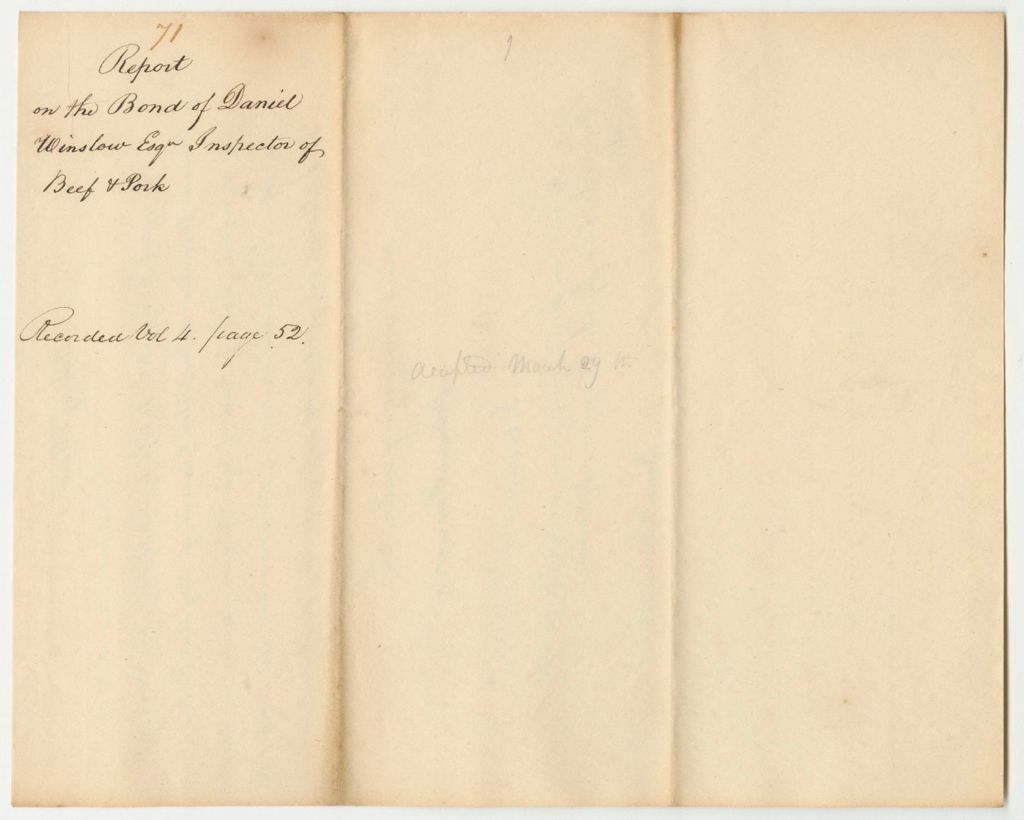 71
Report
on the Bond of Daniel
Winslow Esqr Inspector of
Beef & Pork
Recorded Vol 4. page 52.
1
accepted March 29 th